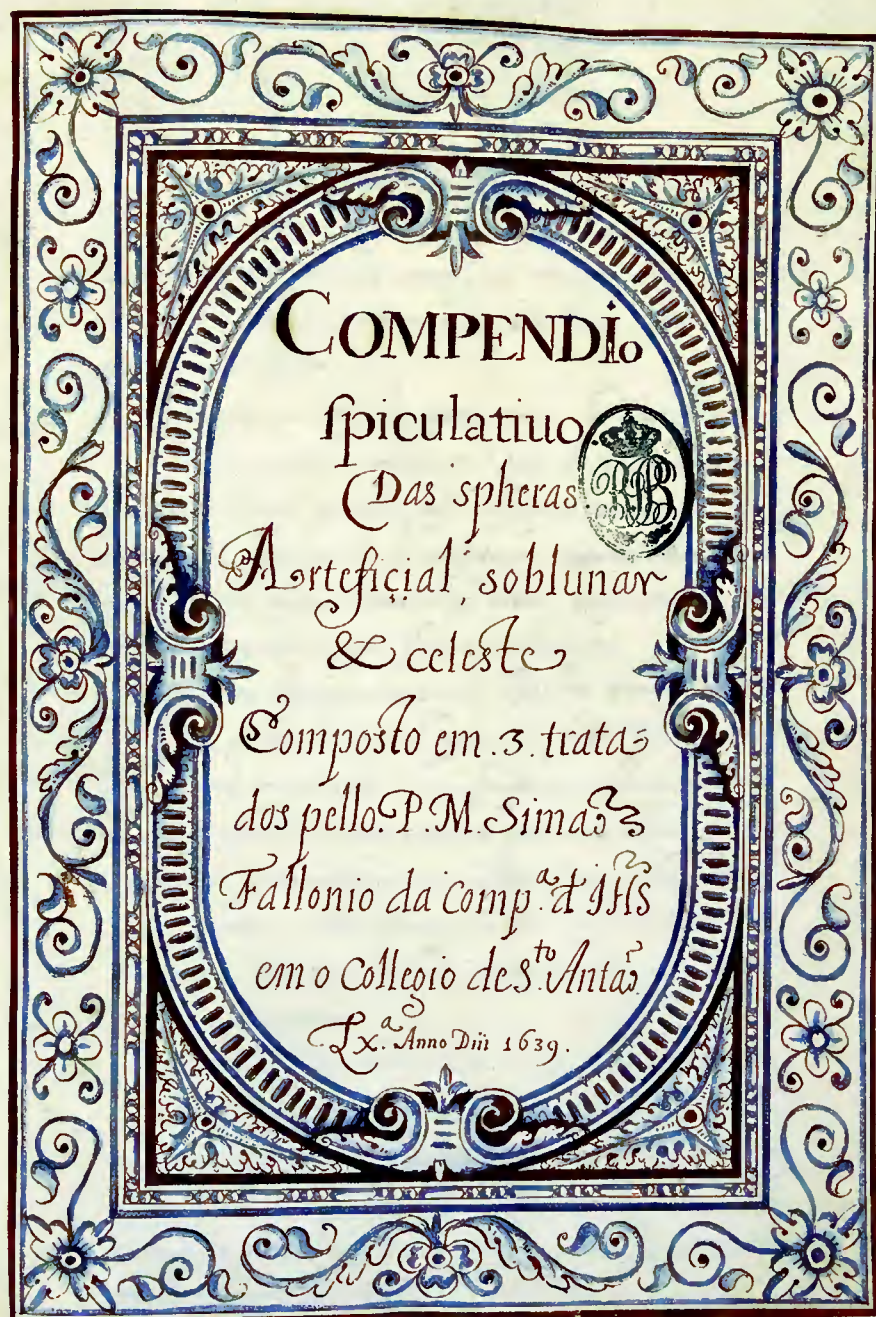 COMPENDIo
ſpiculatiuo
Das spheras
Arteficial, soblunar
& celeste
Composto em .3. trata-
dos pello. P. M. Simaõ
Fallonio da Comp.ª d IHS
em o Collegio de S.to Antaõ.
Lx.ª Anno Dñi 1639.